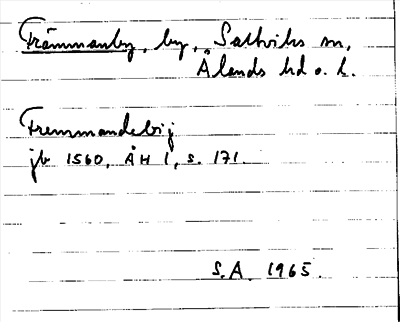 Främmanby, by, Saltviks sn,
Ålands hd o. l.
Fremmandebij
jb 1560, ÅH 1, s. 171.
S.A. 1965.